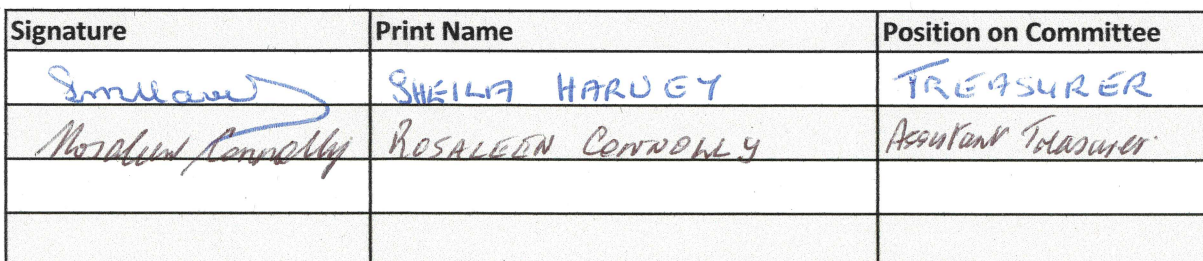 Signature Print Name Position on Committee
SHEILA HARVEY TREASURER
Rosaleen Connolly ROSALEEN CONNOLLY Assistant Treasurer